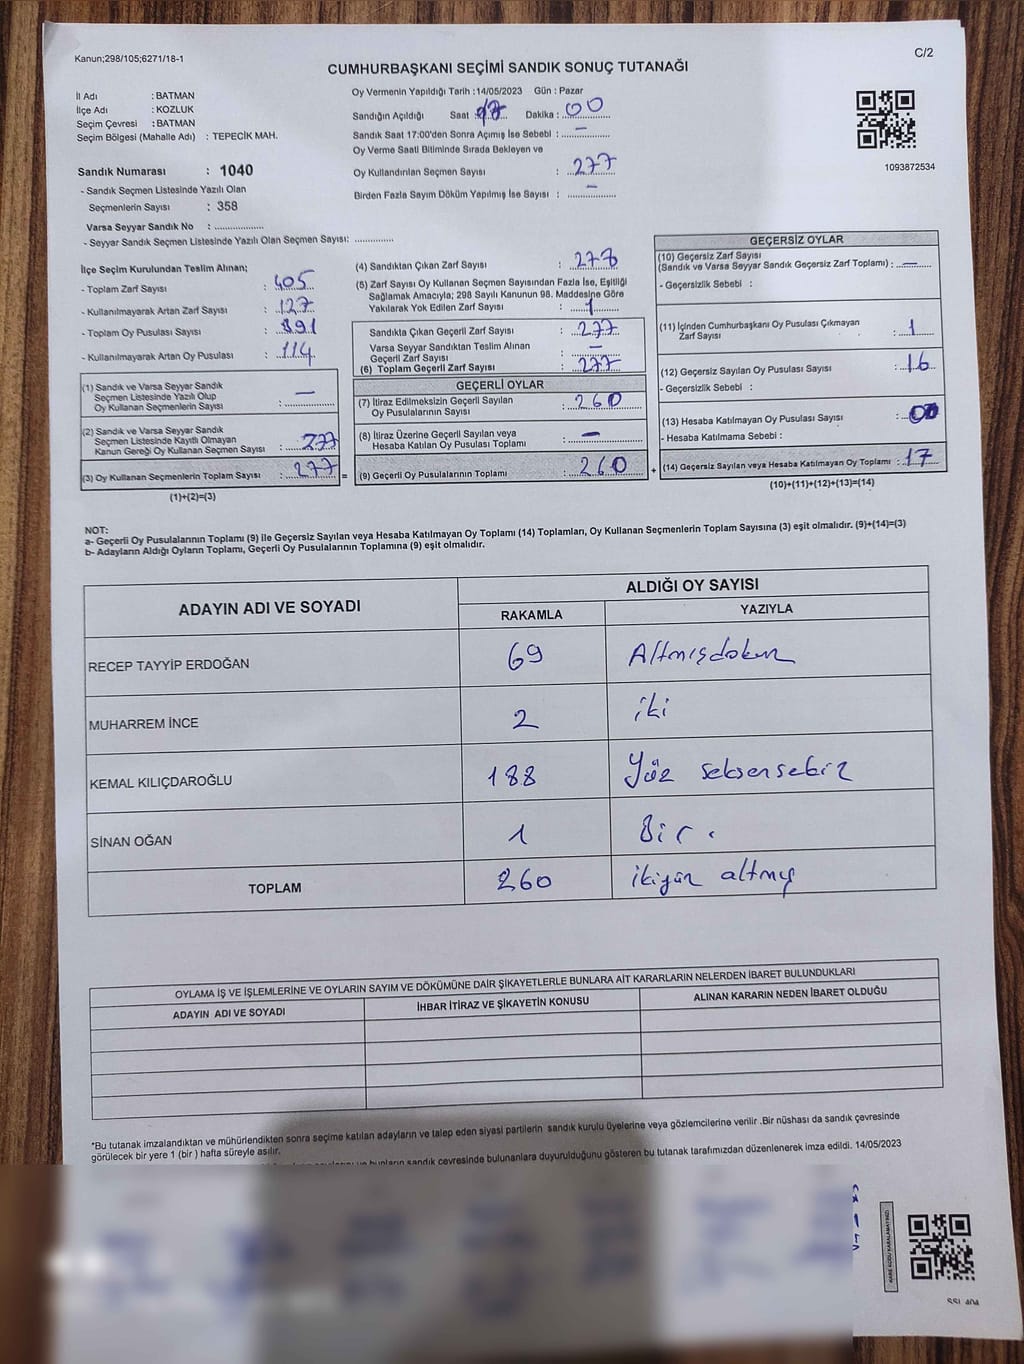 Kanun;298/105;6271/18-1
C/2
CUMHURBAŞKANI SEÇİMİ SANDIK SONUÇ TUTANAĞI
İl Adı : BATMAN
İlçe Adı : KOZLUK
Seçim Çevresi : BATMAN
Seçim Bölgesi (Mahalle Adı) : TEPECİK MAH.
Sandık Numarası : 1040
- Sandık Seçmen Listesinde Yazılı Olan
Seçmenlerin Sayısı : 358
Varsa Seyyar Sandık No : ..................
- Seyyar Sandık Seçmen Listesinde Yazılı Olan Seçmen Sayısı: ..............
Oy Vermenin Yapıldığı Tarih :14/05/2023 Gün : Pazar
Sandığın Açıldığı Saat Dakika : 00
Sandık Saat 17:00'den Sonra Açımış İse Sebebi : –
Oy Verme Saati Bitiminde Sırada Bekleyen ve
Oy Kullandırılan Seçmen Sayısı : 277
Birden Fazla Sayım Döküm Yapılmış İse Sayısı : –
1093872534
İlçe Seçim Kurulundan Teslim Alınan;
- Toplam Zarf Sayısı : 405
- Kullanılmayarak Artan Zarf Sayısı : 127
- Toplam Oy Pusulası Sayısı : 391
- Kullanılmayarak Artan Oy Pusulası : 114
(1) Sandık ve Varsa Seyyar Sandık
Seçmen Listesinde Yazılı Olup
Oy Kullanan Seçmenlerin Sayısı : –
(2) Sandık ve Varsa Seyyar Sandık
Seçmen Listesinde Kayıtlı Olmayan
Kanun Gereği Oy Kullanan Seçmen Sayısı : 277
(3) Oy Kullanan Seçmenlerin Toplam Sayısı : 277 =
(1)+(2)=(3)
(4) Sandıktan Çıkan Zarf Sayısı : 278
(5) Zarf Sayısı Oy Kullanan Seçmen Sayısından Fazla İse, Eşitliği
Sağlamak Amacıyla; 298 Sayılı Kanunun 98. Maddesine Göre
Yakılarak Yok Edilen Zarf Sayısı : 1
Sandıkta Çıkan Geçerli Zarf Sayısı : 277
Varsa Seyyar Sandıktan Teslim Alınan
Geçerli Zarf Sayısı : –
(6) Toplam Geçerli Zarf Sayısı : 277
GEÇERLİ OYLAR
(7) İtiraz Edilmeksizin Geçerli Sayılan
Oy Pusulalarının Sayısı : 260
(8) İtiraz Üzerine Geçerli Sayılan veya
Hesaba Katılan Oy Pusulası Toplamı : –
(9) Geçerli Oy Pusulalarının Toplamı : 260 +
GEÇERSİZ OYLAR
(10) Geçersiz Zarf Sayısı
(Sandık ve Varsa Seyyar Sandık Geçersiz Zarf Toplamı) : –
- Geçersizlik Sebebi :
(11) İçinden Cumhurbaşkanı Oy Pusulası Çıkmayan
Zarf Sayısı : 1
(12) Geçersiz Sayılan Oy Pusulası Sayısı : 16
- Geçersizlik Sebebi :
(13) Hesaba Katılmayan Oy Pusulası Sayısı :
- Hesaba Katılmama Sebebi :
(14) Geçersiz Sayılan veya Hesaba Katılmayan Oy Toplamı : 17
(10)+(11)+(12)+(13)=(14)
NOT:
a- Geçerli Oy Pusulalarının Toplamı (9) ile Geçersiz Sayılan veya Hesaba Katılmayan Oy Toplamı (14) Toplamları, Oy Kullanan Seçmenlerin Toplam Sayısına (3) eşit olmalıdır. (9)+(14)=(3)
b- Adayların Aldığı Oyların Toplamı, Geçerli Oy Pusulalarının Toplamına (9) eşit olmalıdır.
ADAYIN ADI VE SOYADI ALDIĞI OY SAYISI
RAKAMLA YAZIYLA
RECEP TAYYİP ERDOĞAN 69 Altmışdokuz
MUHARREM İNCE 2 iki
KEMAL KILIÇDAROĞLU 188 Yüz seksensekiz
SİNAN OĞAN 1 Bir .
TOPLAM 260 ikiyüz altmış
OYLAMA İŞ VE İŞLEMLERİNE VE OYLARIN SAYIM VE DÖKÜMÜNE DAİR ŞİKAYETLERLE BUNLARA AİT KARARLARIN NELERDEN İBARET BULUNDUKLARI
ADAYIN ADI VE SOYADI İHBAR İTİRAZ VE ŞİKAYETİN KONUSU ALINAN KARARIN NEDEN İBARET OLDUĞU
*Bu tutanak imzalandıktan ve mühürlendikten sonra seçime katılan adayların ve talep eden siyasi partilerin sandık kurulu üyelerine veya gözlemcilerine verilir .Bir nüshası da sandık çevresinde
görülecek bir yere 1 (bir ) hafta süreyle asılır.
ve bunların sandık çevresinde bulunanlara duyurulduğunu gösteren bu tutanak tarafımızdan düzenlenerek imza edildi. 14/05/2023
KARE KODU KARALAMAYINIZ!